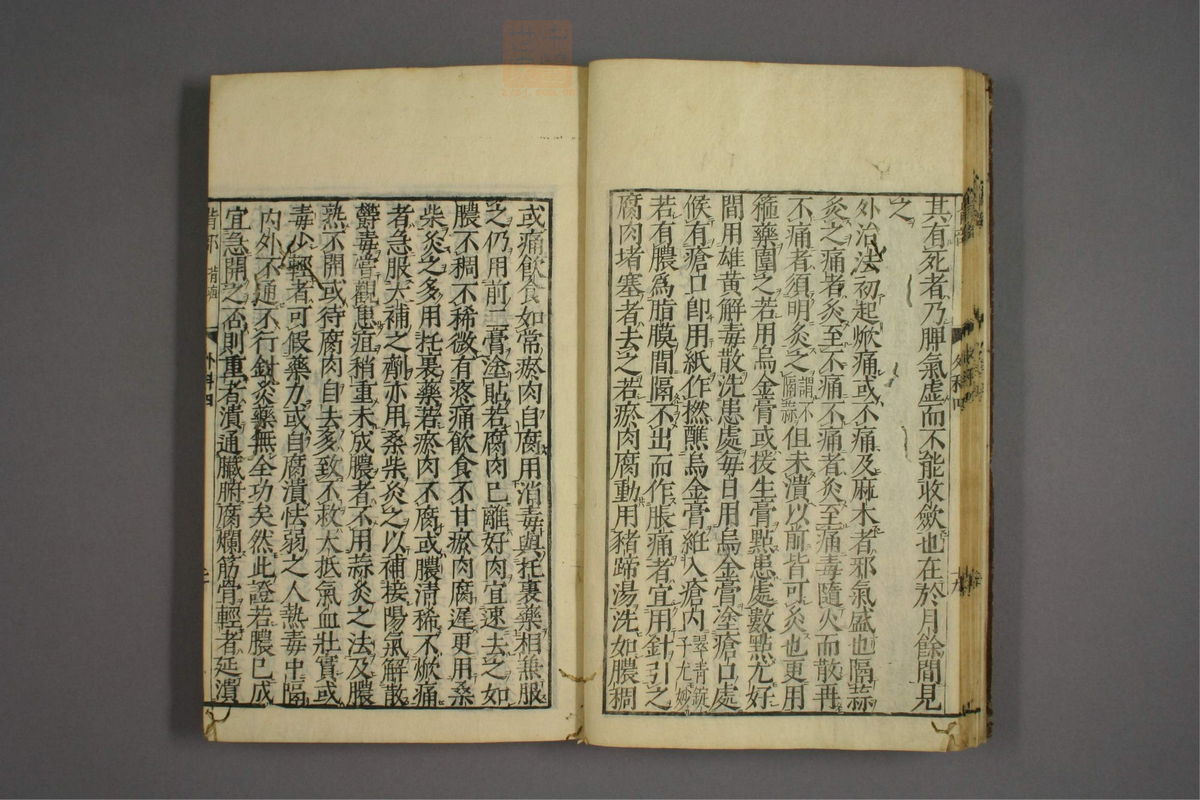 其有死者乃脾氣虛而不能收斂也在於月餘間見
之
外治法初起焮痛或不痛及麻木者邪氣盛也隔蒜
灸之痛者灸至不痛不痛者灸至痛毒隨火而散再
不痛者須明灸之謂不隔蒜但未潰以前皆可灸也更用
箍藥圍之若用烏金膏或援生膏點患處數點尤好
間用雄黃解毒散洗患處每日用烏金膏塗瘡口處
候有瘡口卽用紙作撚蘸烏金膏紝入瘡內翠青錠子尤妙
若有膿爲脂膜間隔不出而作脹痛者宜用針引之
腐肉堵塞者去之若瘀肉腐動用猪蹄湯洗如膿稠
或痛飲食如常瘀肉自腐用消毒與托裏藥相兼服
之仍用前二膏塗貼若腐肉已離好肉宜速去之如
膿不稠不稀微有疼痛飲食不甘瘀肉腐遲更用桑
柴灸之多用托裏藥若瘀肉不腐或膿清稀不焮痛
者急服大補之劑亦用桑柴灸之以補接陽氣解散
鬱毒嘗觀患疽稍重未成膿者不用蒜灸之法及膿
熟不開或待腐肉自去多致不救大抵氣血壯實或
毒少輕者可假藥力或自腐潰怯弱之人熱毒中隔
內外不通不行針灸藥無全功矣然此證若膿已成
宜急開之否則重者潰通臟腑腐爛筋骨輕者延潰
外科四